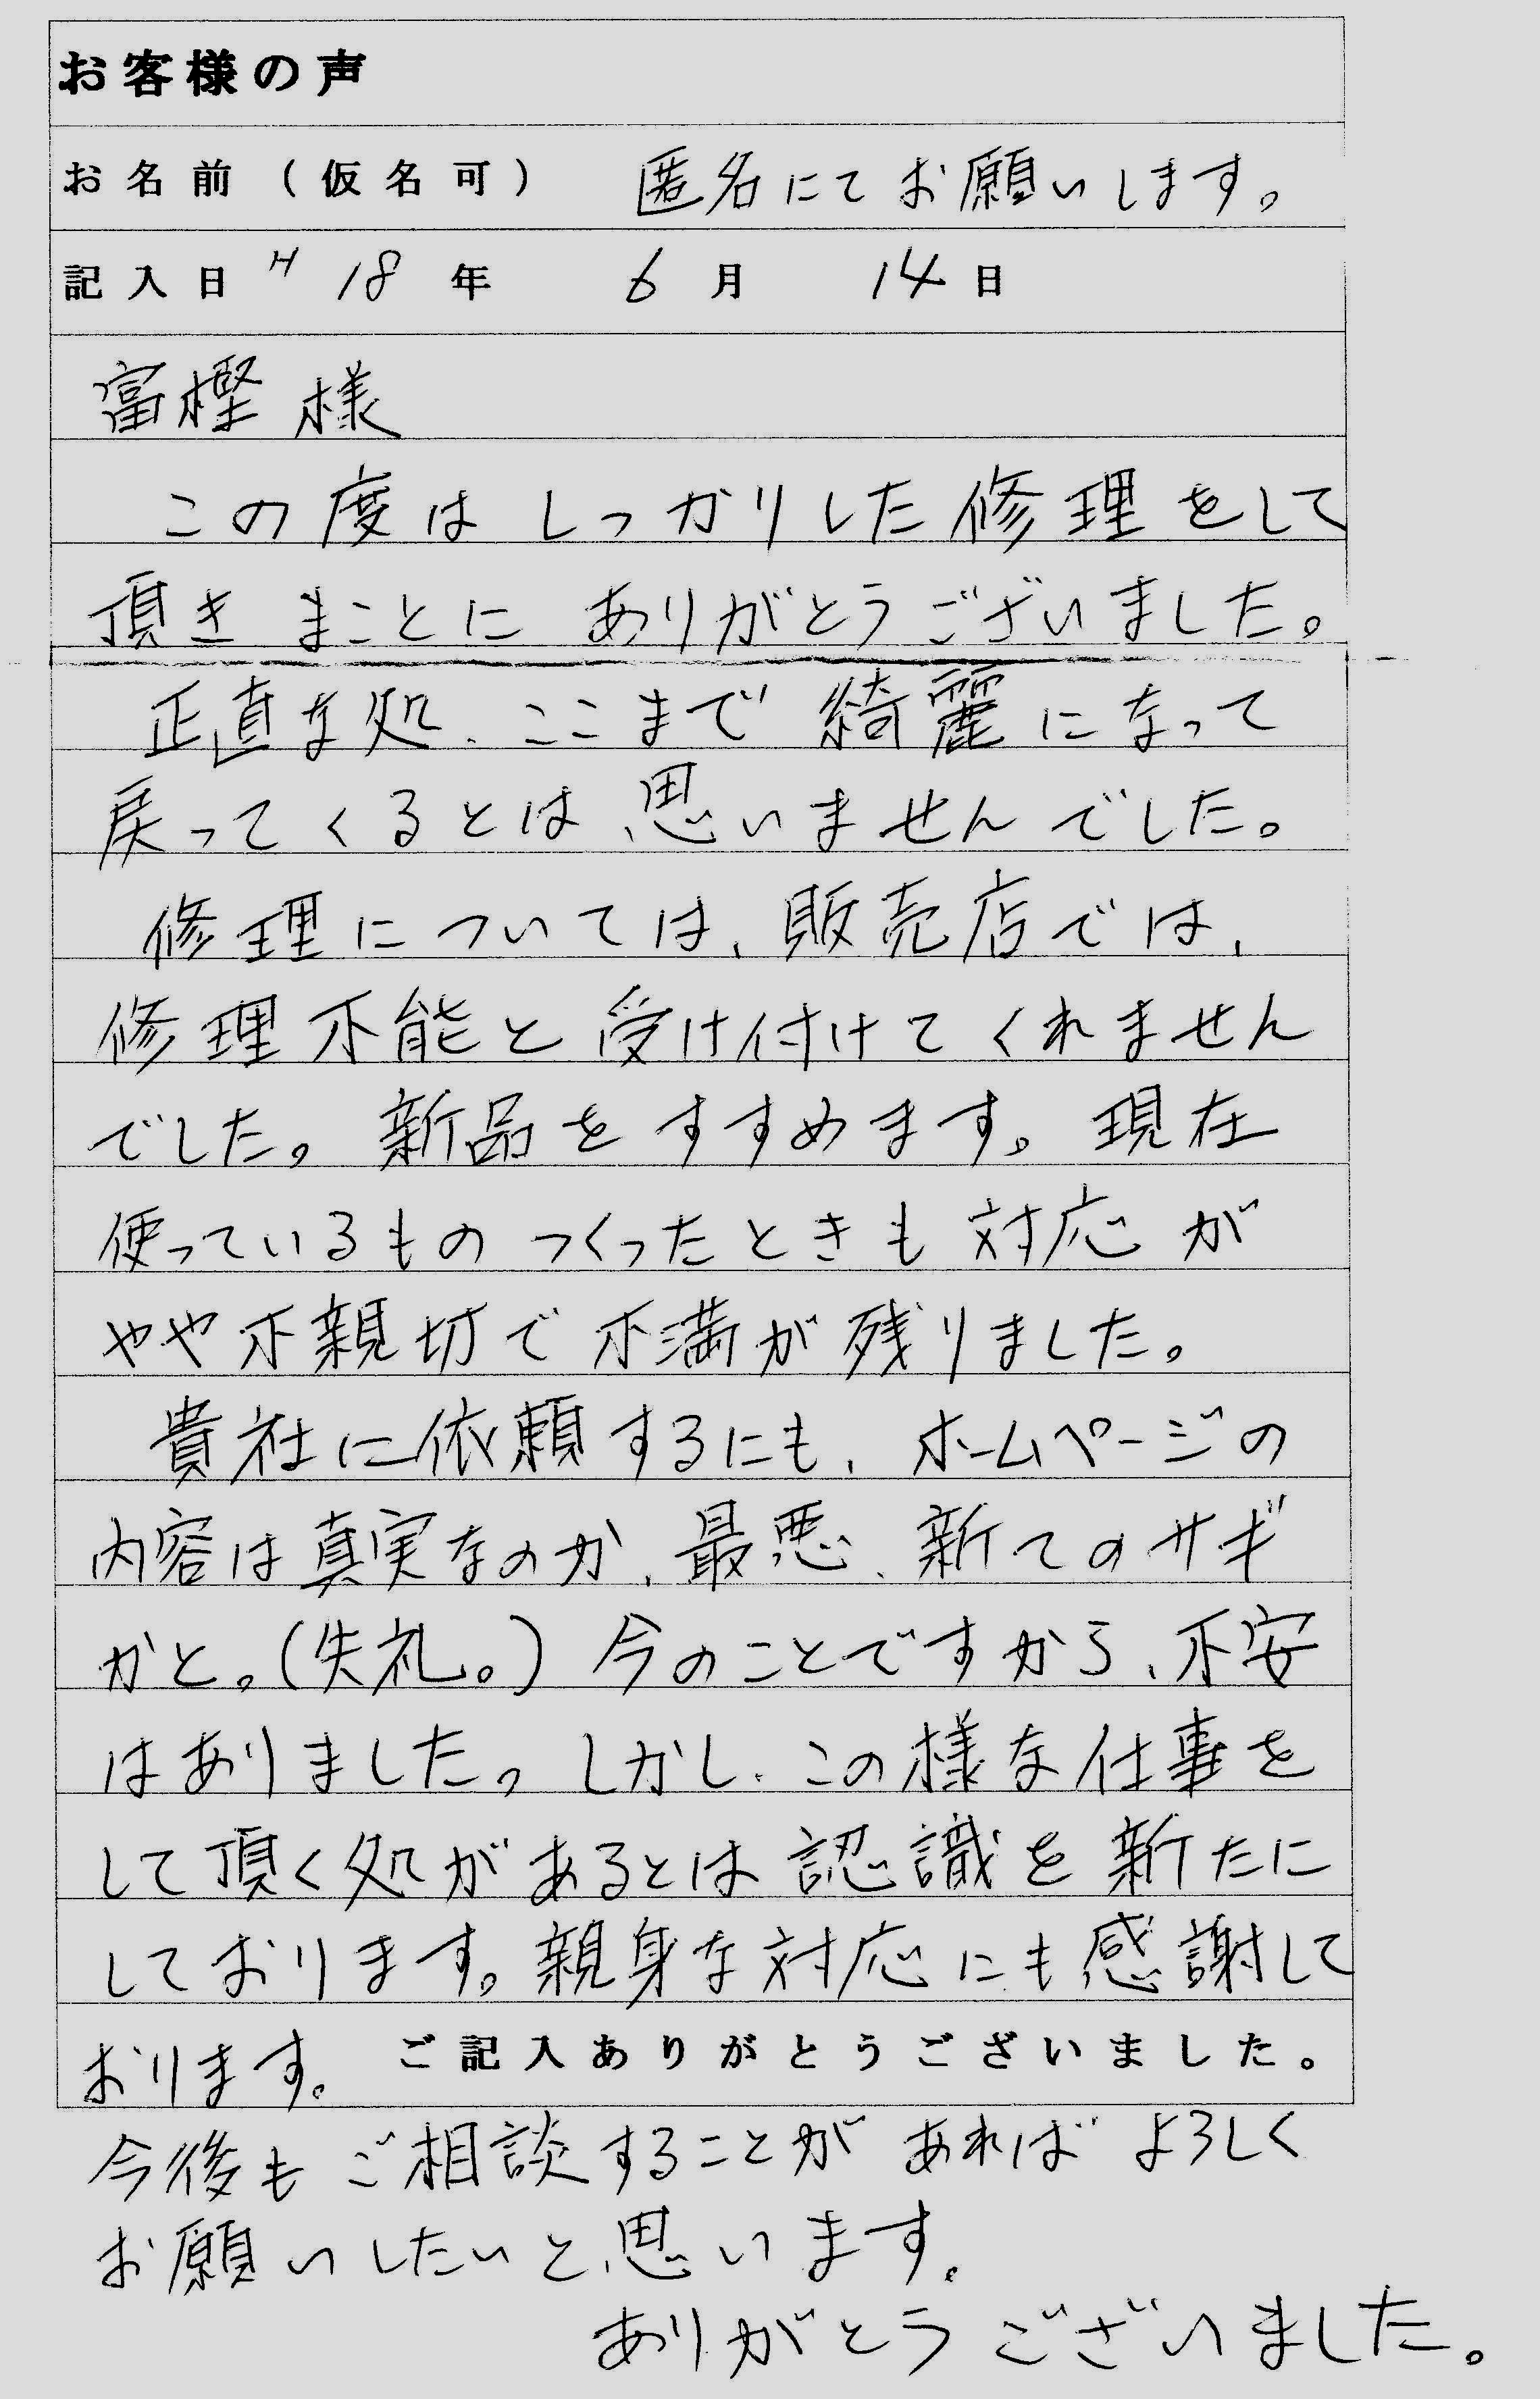 お客様の声
お名前（仮名可） 匿名にてお願いします。
記入日 H 18 年 6 月 14 日
富樫 様
この度は しっかりした 修理をして
頂き まことに ありがとうございました。
正直な処、ここまで 綺麗になって
戻ってくるとは、思いませんでした。
修理については、販売店では、
修理不能と 受け付けてくれません
でした。新品をすすめます。現在
使っているもの つくったときも 対応が
やや不親切で 不満が残りました。
貴社に依頼するにも、ホームページの
内容は真実なのか、最悪、新てのサギ
かと。(失礼。) 今のことですから、不安
はありました。しかし、この様な仕事を
して頂く処があるとは 認識を新たに
しております。親身な対応にも感謝して
おります。 ご記入ありがとうございました。
今後も ご相談することが あれば よろしく
お願いしたいと、思います。
ありがとうございました。